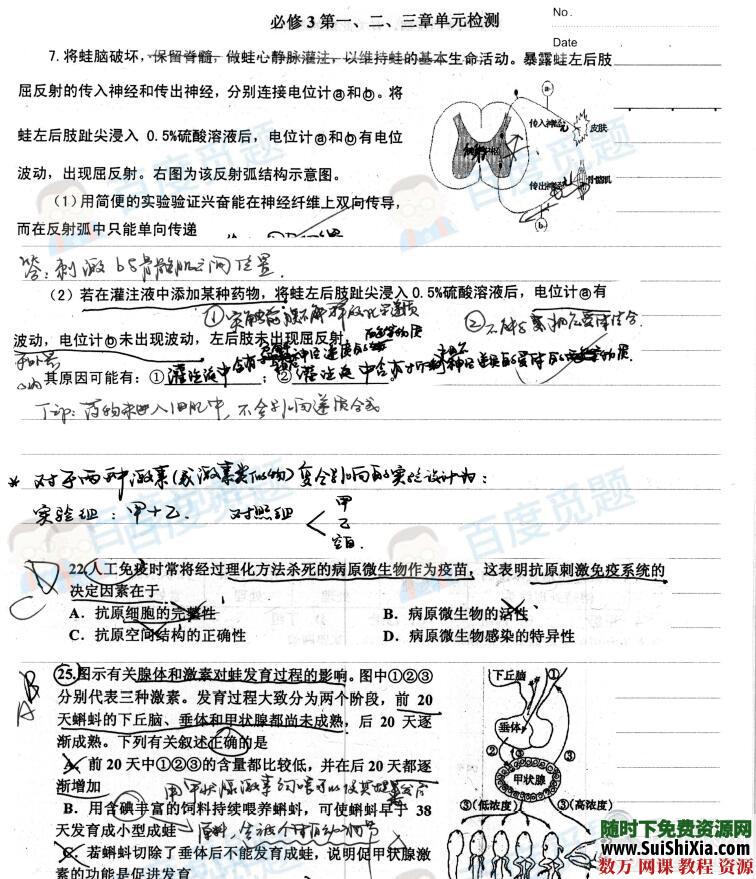 必修3第一、二、三章单元检测
No.
Date
7. 将蛙脑破坏，保留脊髓，做蛙心静脉灌注，以维持蛙的基本生命活动。暴露蛙左后肢
屈反射的传入神经和传出神经，分别连接电位计ⓐ和ⓑ。将
蛙左后肢趾尖浸入 0.5%硫酸溶液后，电位计ⓐ和ⓑ有电位
波动，出现屈反射。右图为该反射弧结构示意图。
a
传入神经元
皮肤
传出神经元
骨骼肌
b
（1）用简便的实验验证兴奋能在神经纤维上双向传导，
而在反射弧中只能单向传递
答：刺激b与骨骼肌之间位置.
（2）若在灌注液中添加某种药物，将蛙左后肢趾尖浸入 0.5%硫酸溶液后，电位计ⓐ有
①突触前膜不释放化学递质
波动，电位计ⓑ未出现波动，左后肢未出现屈反射，
其原因可能有：①灌注液中含有 ；②灌注液中含有
药物未进入细胞中，不会影响递质合成
* 对于两种激素(或激素类似物)复合影响的实验设计为：
实验组：甲+乙. 对照组
甲
乙
空白.
22. 人工免疫时常将经过理化方法杀死的病原微生物作为疫苗，这表明抗原刺激免疫系统的
决定因素在于
A．抗原细胞的完整性 B．病原微生物的活性
C．抗原空间结构的正确性 D．病原微生物感染的特异性
B
A
25. 图示有关腺体和激素对蛙发育过程的影响。图中①②③
分别代表三种激素。发育过程大致分为两个阶段，前 20
天蝌蚪的下丘脑、垂体和甲状腺都尚未成熟，后 20 天逐
渐成熟。下列有关叙述正确的是
A．前 20 天中①②③的含量都比较低，并在后 20 天都逐
渐增加
B．用含碘丰富的饲料持续喂养蝌蚪，可使蝌蚪早于 38
天发育成小型成蛙
C．若蝌蚪切除了垂体后不能发育成蛙，说明促甲状腺激
素的功能是促进发育
下丘脑
①
垂体
②
③
③
甲状腺
③(低浓度)
③(高浓度)
百度觅题
百度觅题
百度觅题
百度觅题
随时下免费资源网
www.SuiShiXia.com
数万 网课 教程 资料